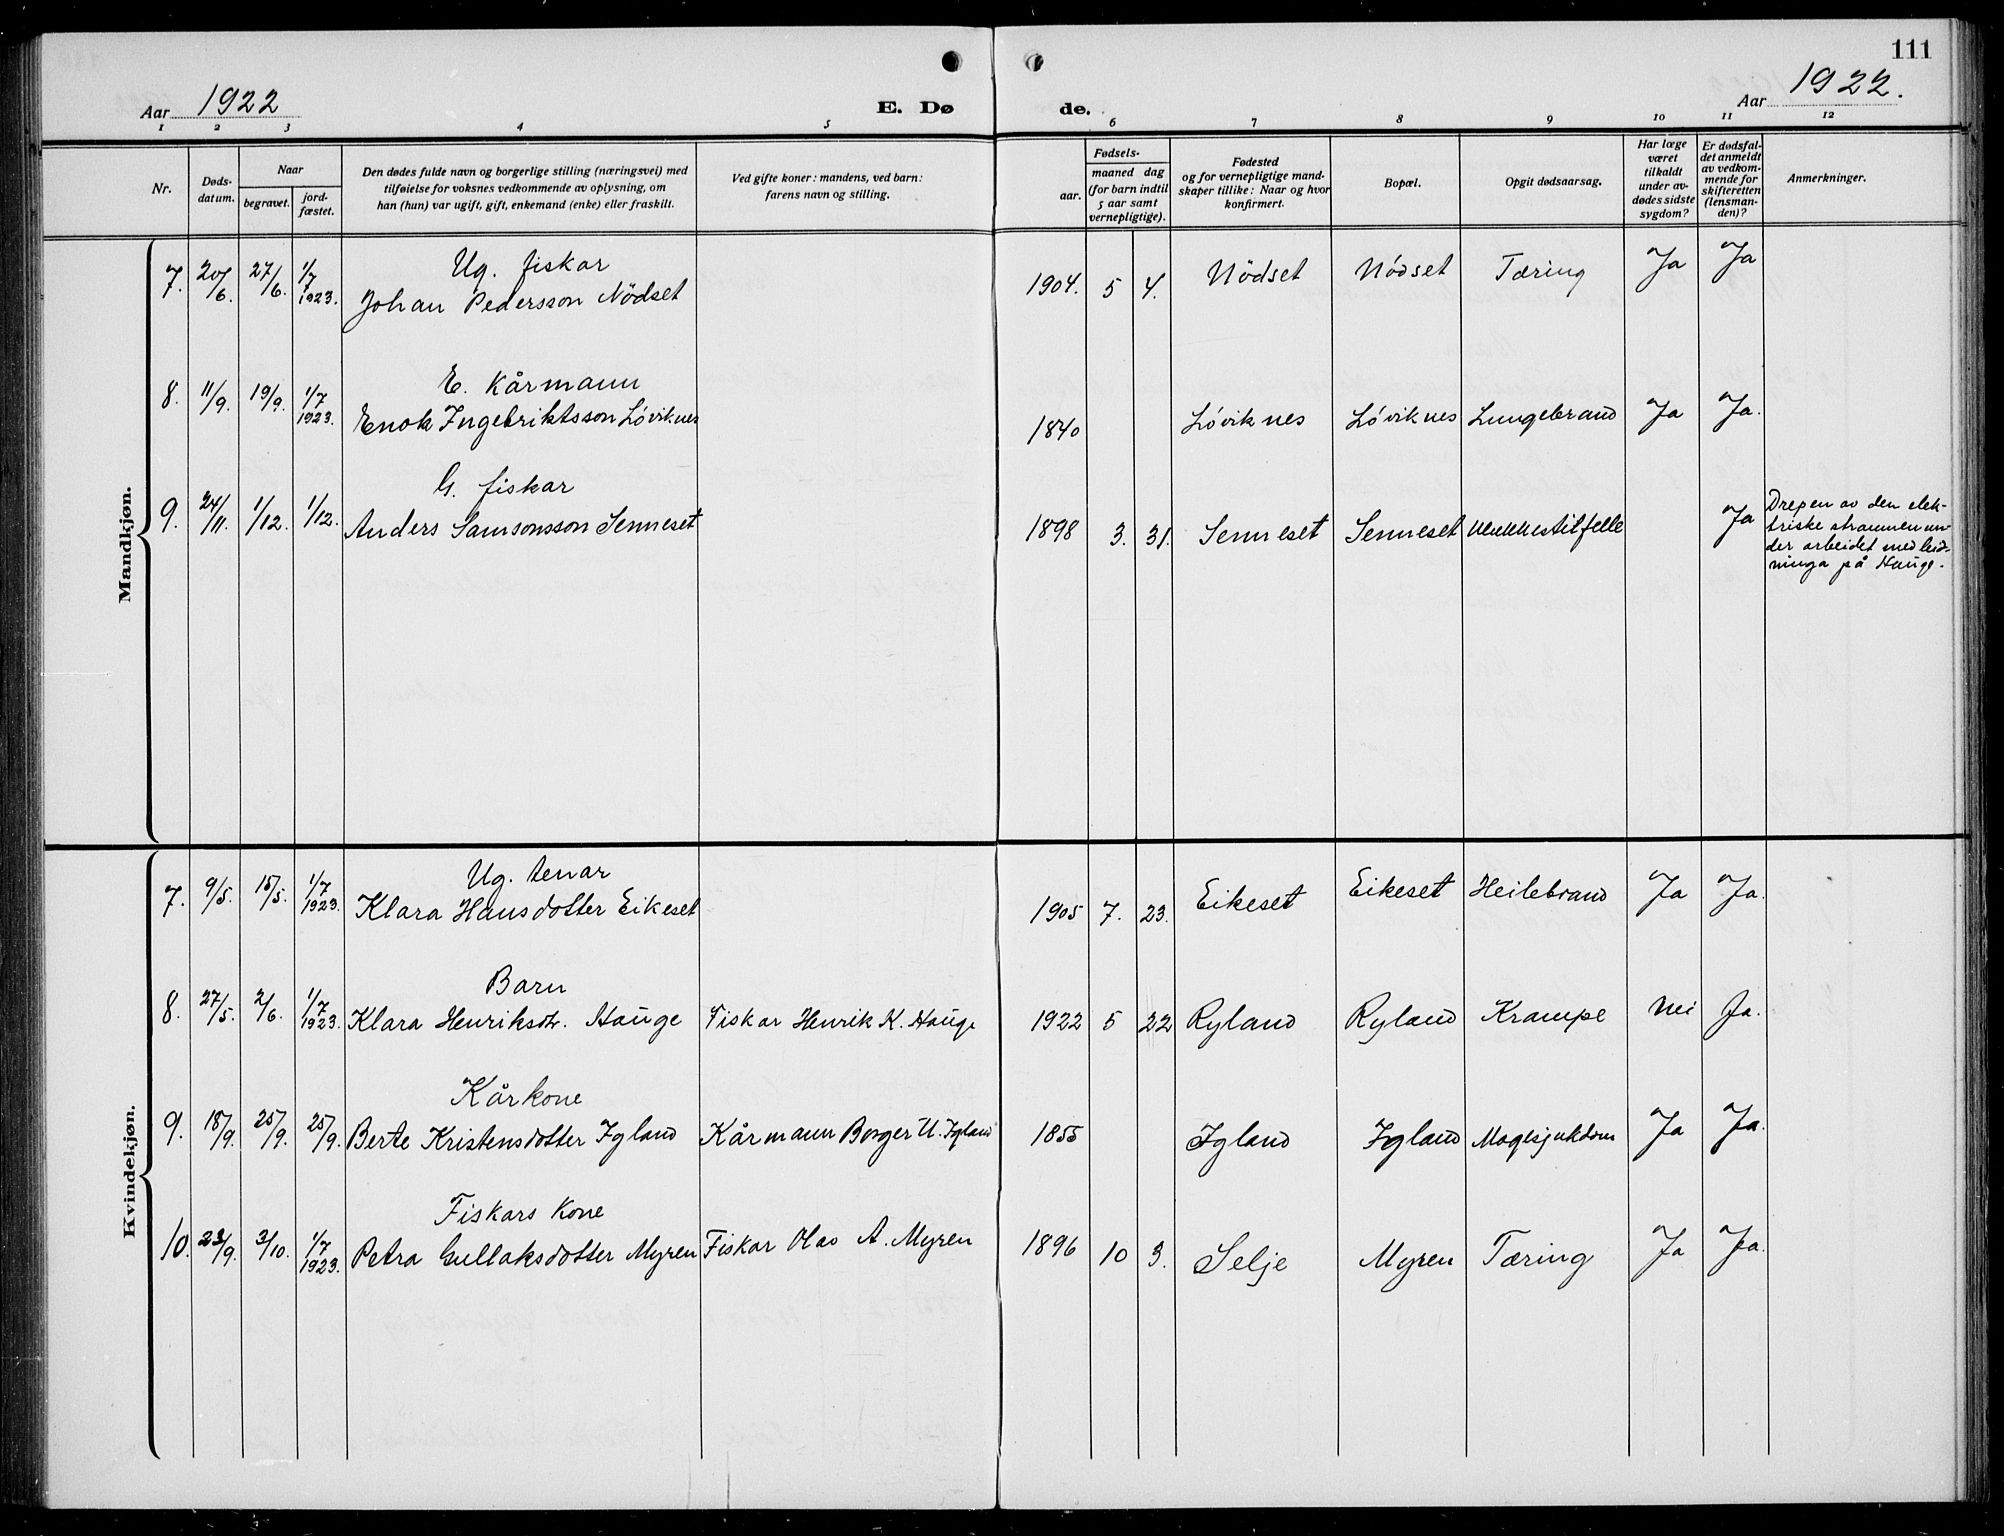 111
Aar 1922
E. Dø
de.
Aar 1922.
1 2 3 4 5 6 7 8 9 10 11 12
Nr.
Døds-
datum.
Naar
begravet.
jord-
fæstet.
Den dødes fulde navn og borgerlige stilling (næringsvei) med
tilføielse for voksnes vedkommende av oplysning, om
han (hun) var ugift, gift, enkemand (enke) eller fraskilt.
Ved gifte koner: mandens, ved barn:
farens navn og stilling.
Fødsels-
aar.
maaned dag
(for barn indtil
5 aar samt
vernepligtige).
Fødested
og for vernepligtige mand-
skaper tillike: Naar og hvor
konfirmert.
Bopæl.
Opgit dødsaarsag.
Har læge
været
tilkaldt
under av-
dødes sidste
sygdom?
Er dødsfal-
det anmeldt
av vedkom-
mende for
skifteretten
(lensman-
den)?
Anmerkninger.
Mandkjøn.
Ug. fiskar
7. 20/6. 27/6. 1/7 1923. Johan Pedersson Nödset 1904. 5 4. Nödset Nödset Tæring Ja Ja
E. Kårmann
8. 11/9. 19/9. 1/7 1923. Enok Ingebriktsson Lóviknes 1840 Lóviknes Lóviknes Lungebrand Ja Ja.
G. fiskar
9. 24/11. 1/12. 1/12. Anders Samsonsson Senneset 1898 3. 31. Senneset Senneset Ulukkestilfelle Ja
Drepen av den elek-
triske straumen un-
der arbeidet med leid-
ninga på Hauge.
Kvindekjøn.
Ug. tenar
7. 9/5. 15/5. 1/7 1923. Klara Hansdotter Eikeset 1905 7. 23. Eikeset Eikeset Heilebrand Ja Ja.
Barn
8. 27/5. 2/6. 1/7 1923. Klara Henriksdtr. Hauge Fiskar Henrik K. Hauge 1922 5 22 Ryland Ryland Krampe Nei Ja.
Kårkone
9. 18/9. 25/9. 25/9. Berte Kristensdotter Igland Kårmann Borger U. Igland 1855 Igland Igland Magesjukdom Ja Ja.
Fiskars Kone
10. 23/9. 3/10. 1/7 1923. Petra Gullaksdotter Myren Fiskar Olav A. Myren 1896 10 3. Selje Myren Tæring Ja Ja.